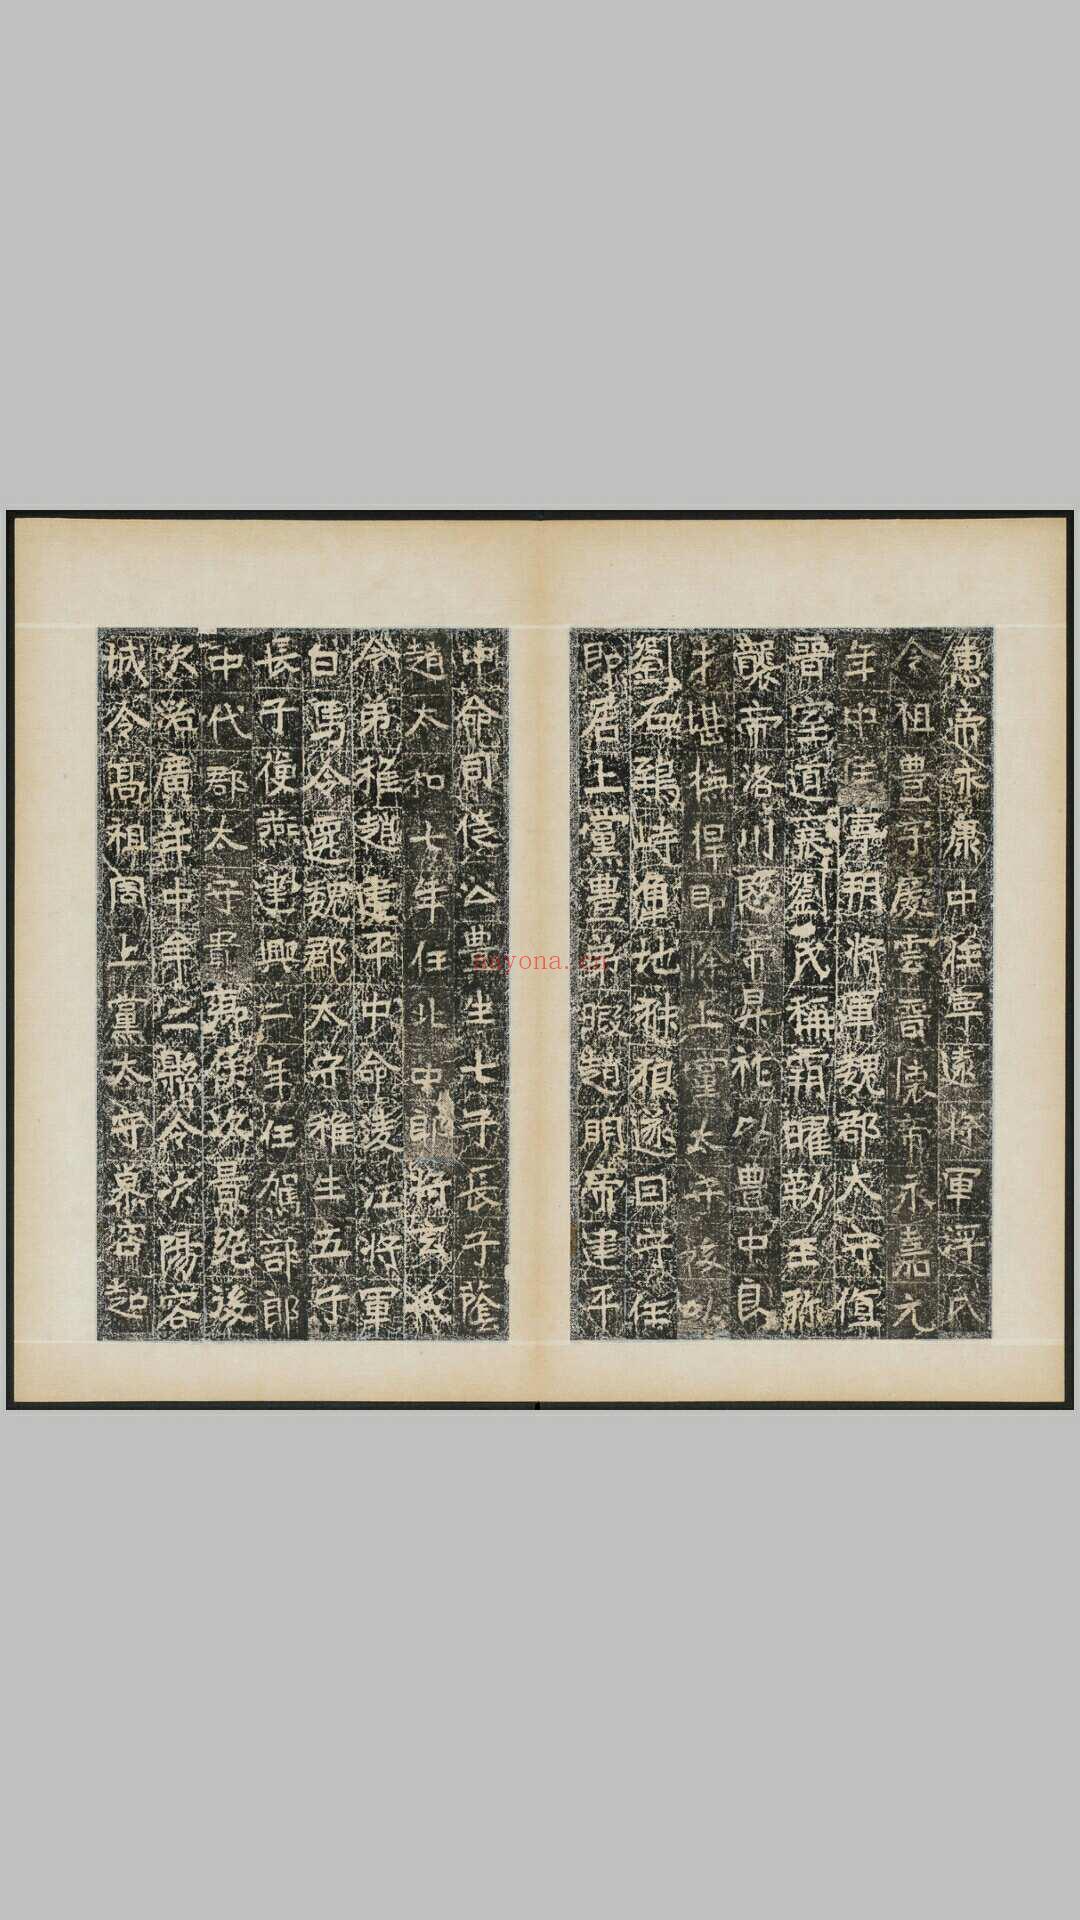 惠帝永康中任寧遠將軍浮氏
令祖豊字慶雲晉懷帝永嘉元
年中任寧朔將軍魏郡太守值
晉室道衰劉氏稱霸曜勒王称
襲帝洛川愍帝晃祚以豊中良
才堪撫捍即除上黨太守後以
劉石鵄峙兩地猴狽遂回守任
即居上黨豊弟暇趙明帝建平
中命司徒公豊生七子長子蔭
趙太和七年任北中郎將玄氏
令弟稚趙建平中命淩江將軍
白馬令還魏郡太守稚生五子
長子便燕建興二年任駕部郎
中代郡太守貴弟侯次曇紇後
次洛廣年中余二縣令次陽容
城令高祖罔上黨太守慕容起